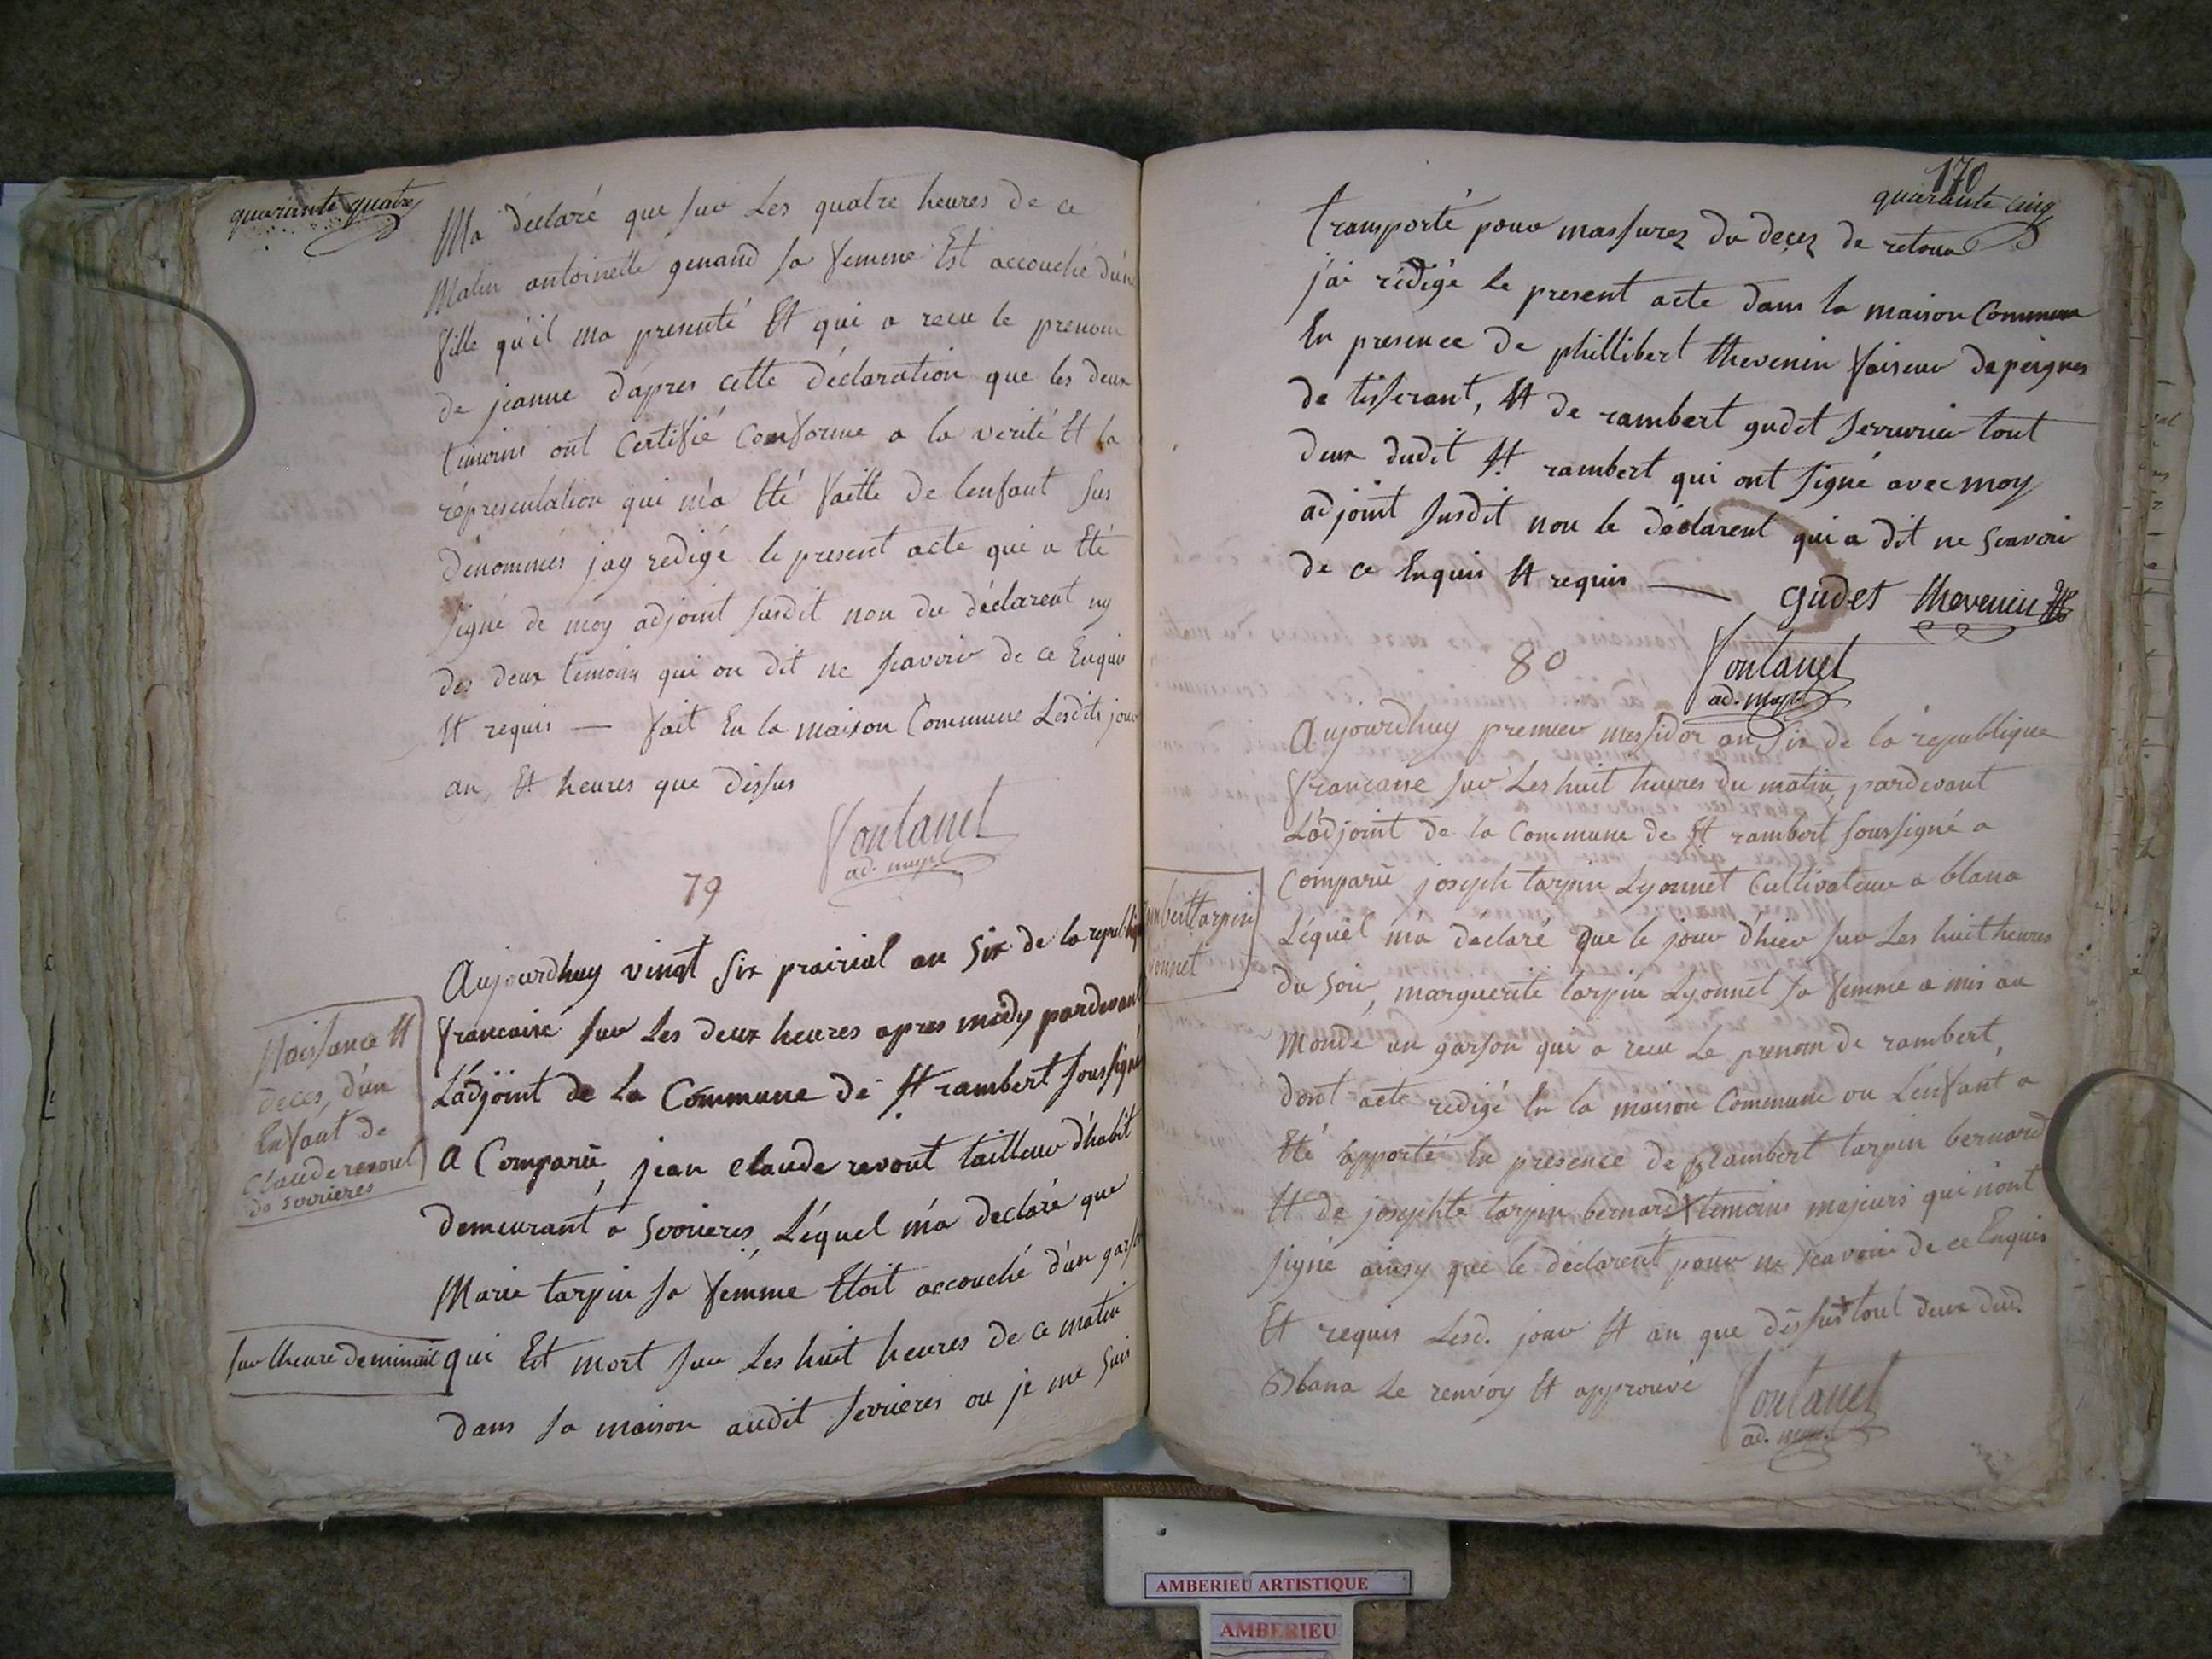 quarante quatre
Ma déclaré que sur Les quatre heures de ce
Matin antoinette genand sa femme Est accouché d'une
fille qu'il ma presenté Et qui a recu le prenom
de jeanne d'apres cette déclaration que les deux
temoins ont Certifié Conforme a la verité Et la
répresentation qui m'a Eté faitte de lenfant sus
dénommés jay redigé le present acte qui a Eté
signé de moy adjoint susdit non du déclarent ny
des deux temoins qui on dit ne scavoir de ce Enquis
Et requis — fait En la maison Commune Lesdits jour
an, Et heures que dessus
fontanel
ad. mupl
79
Naissance Et
deces, d'un
Enfant de
Claude revout
de serrieres
Aujourdhuy vingt six prairial an Six de la republique
francaise sur Les deux heures apres midy pardevant
L'adjoint de La Commune de St rambert soussigné
A Comparu, jean claude revout tailleur d'habit
demeurant a serrieres, Léquel m'a declaré que
Marie tarpin sa femme Etoit accouché d'un garson
sur lheure de minuit qui Est mort sur Les huit heures de ce matin
dans sa maison audit serrieres ou je me suis
170
quarante cinq
transporté pour massurez du decez de retour
j'ai rédigé le present acte dans la maison Commune
En presence de phillibert thevenin faiseur de peignes
de tisserant, Et de rambert gudet serrurier tout
deux dudit St rambert qui ont signé avec moy
adjoint susdit non le déclarent qui a dit ne scavoir
de ce Enquis Et requis —
gudet thevenin
fontanel
ad. mupl
80
rambert tarpin
Lyonnet
Aujourdhuy premier messidor an Six de la republique
francaise sur Les huit heures du matin, pardevant
L'adjoint de la Commune de St rambert soussigné a
Comparu joseph tarpin Lyonnet Cultivateur a blana
Léquel m'a déclaré que le jour d'hier sur Les huit heures
du soir, marguerite tarpin Lyonnet sa femme a mis au
monde un garson qui a recu Le prenom de rambert,
dont acte redigé En la maison Commune ou L'enfant a
Eté apporté En presence de rambert tarpin bernard
Et de josephte tarpin bernard temoins majeurs qui n'ont
signé ainsy que le déclarent pour ne scavoir de ce Enquis
Et requis Lesd. jour Et an que dessus tout deux dud.
Blana Le renvoy Et approuvé
fontanel
ad. mupl
AMBERIEU ARTISTIQUE
AMBERIEU